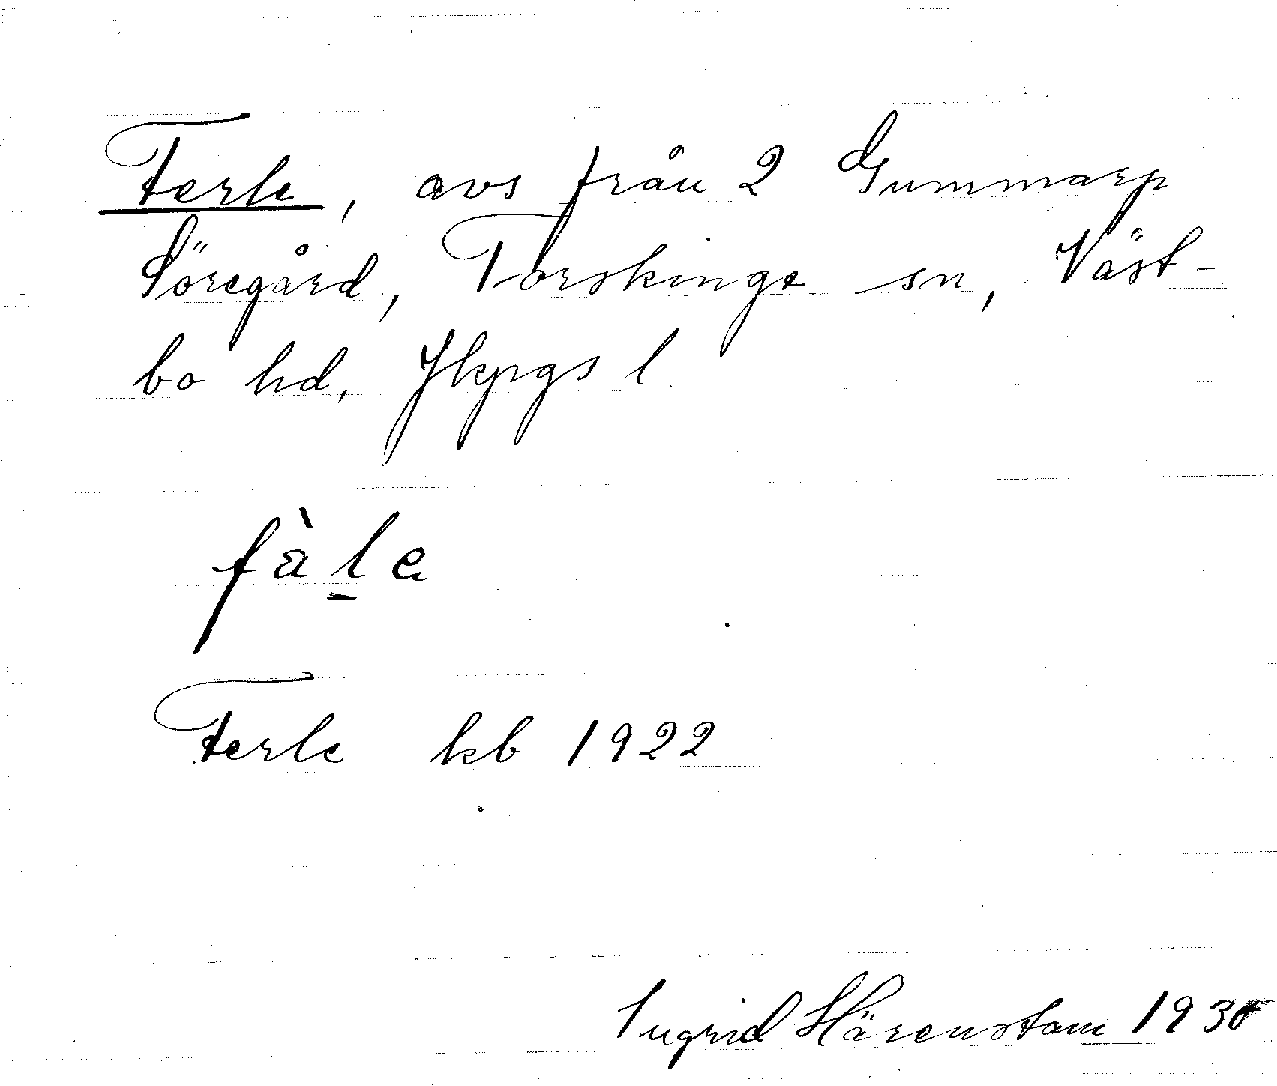 Ferle, avs från 2 Gummarp
Söregård, Torskinge sn, Väst-
bo hd, Jkpgs l
fàle
Ferle kb 1922
Ingrid Härenstam